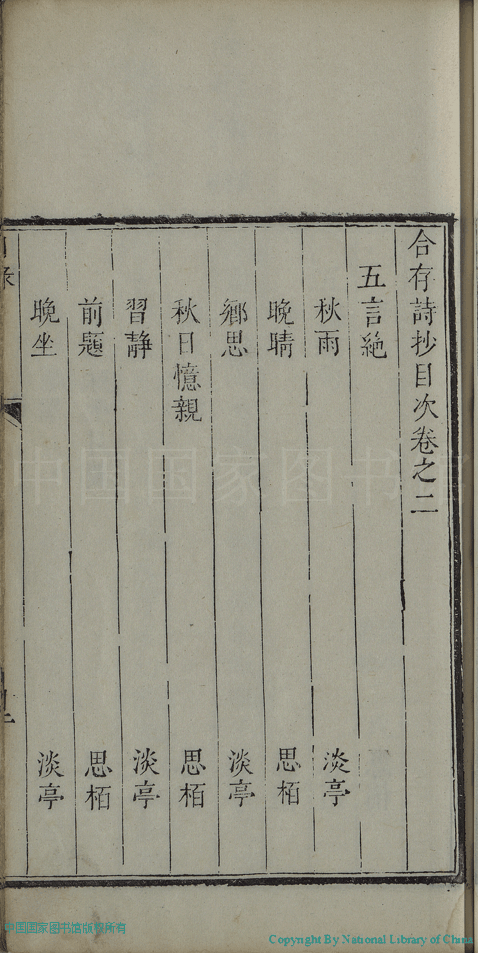 合存詩抄目次卷之二
五言絕
秋雨 淡亭
晚晴 思栢
鄉思 淡亭
秋日憶親 思栢
習静 淡亭
前題 思栢
晚坐 淡亭
中国国家图书馆
中国国家图书馆版权所有
Copyright By National Library of China